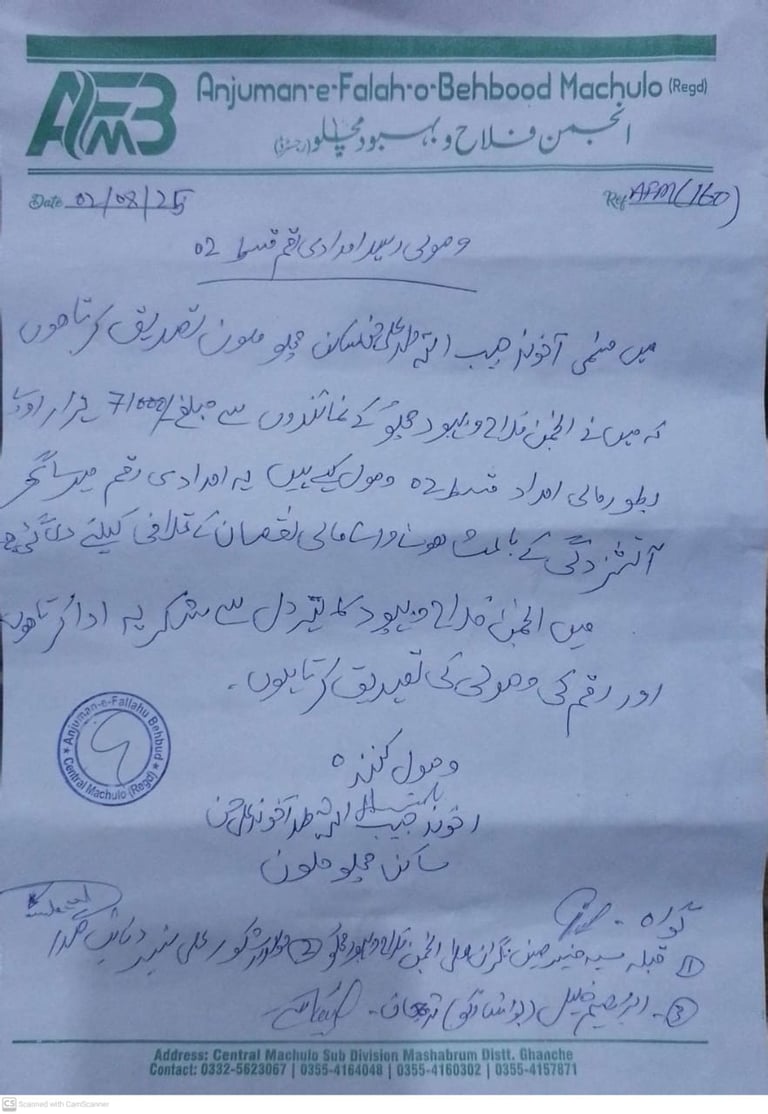 AFMB
Anjuman-e-Falah-o-Behbood Machulo (Regd)
انجمن فلاح و بہبود مچلو (رجسٹرڈ)
Date 02/08/25
Ref AFM(160)
وصولی رسید امدادی رقم قسط 02
میں مسمی آخوند حبیب اللہ ولد علی حسن ساکن مچلو ملون تصدیق کرتا ہوں
کہ میں نے انجمن فلاح و بہبود مچلو کے نمائندوں سے مبلغ 71000/ ہزار روپے
بطور مالی امداد قسط 02 وصول کیے ہیں یہ امدادی رقم میرے گھر
آتشزدگی کے باعث ہونے والے مالی نقصان کے تلافی کیلئے دی گئی ہے
میں انجمن فلاح و بہبود کا تہہ دل سے شکریہ ادا کرتا ہوں
اور رقم کی وصولی کی تصدیق کرتا ہوں۔
Anjuman-e-Fallahu Behbud
Central Machulo (Regd)
وصول کنندہ
اخوند حبیب اللہ ولد آخوند علی حسن
ساکن مچلو ملون
گواہ۔
① قبلہ سید حسین نگران اعلی انجمن فلاح و بہبود مچلو ② شکور علی
③۔ ابراہیم خلیل
Address: Central Machulo Sub Division Mashabrum Distt. Ghanche
Contact: 0332-5623067 | 0355-4164048 | 0355-4160302 | 0355-4157871
CS Scanned with CamScanner